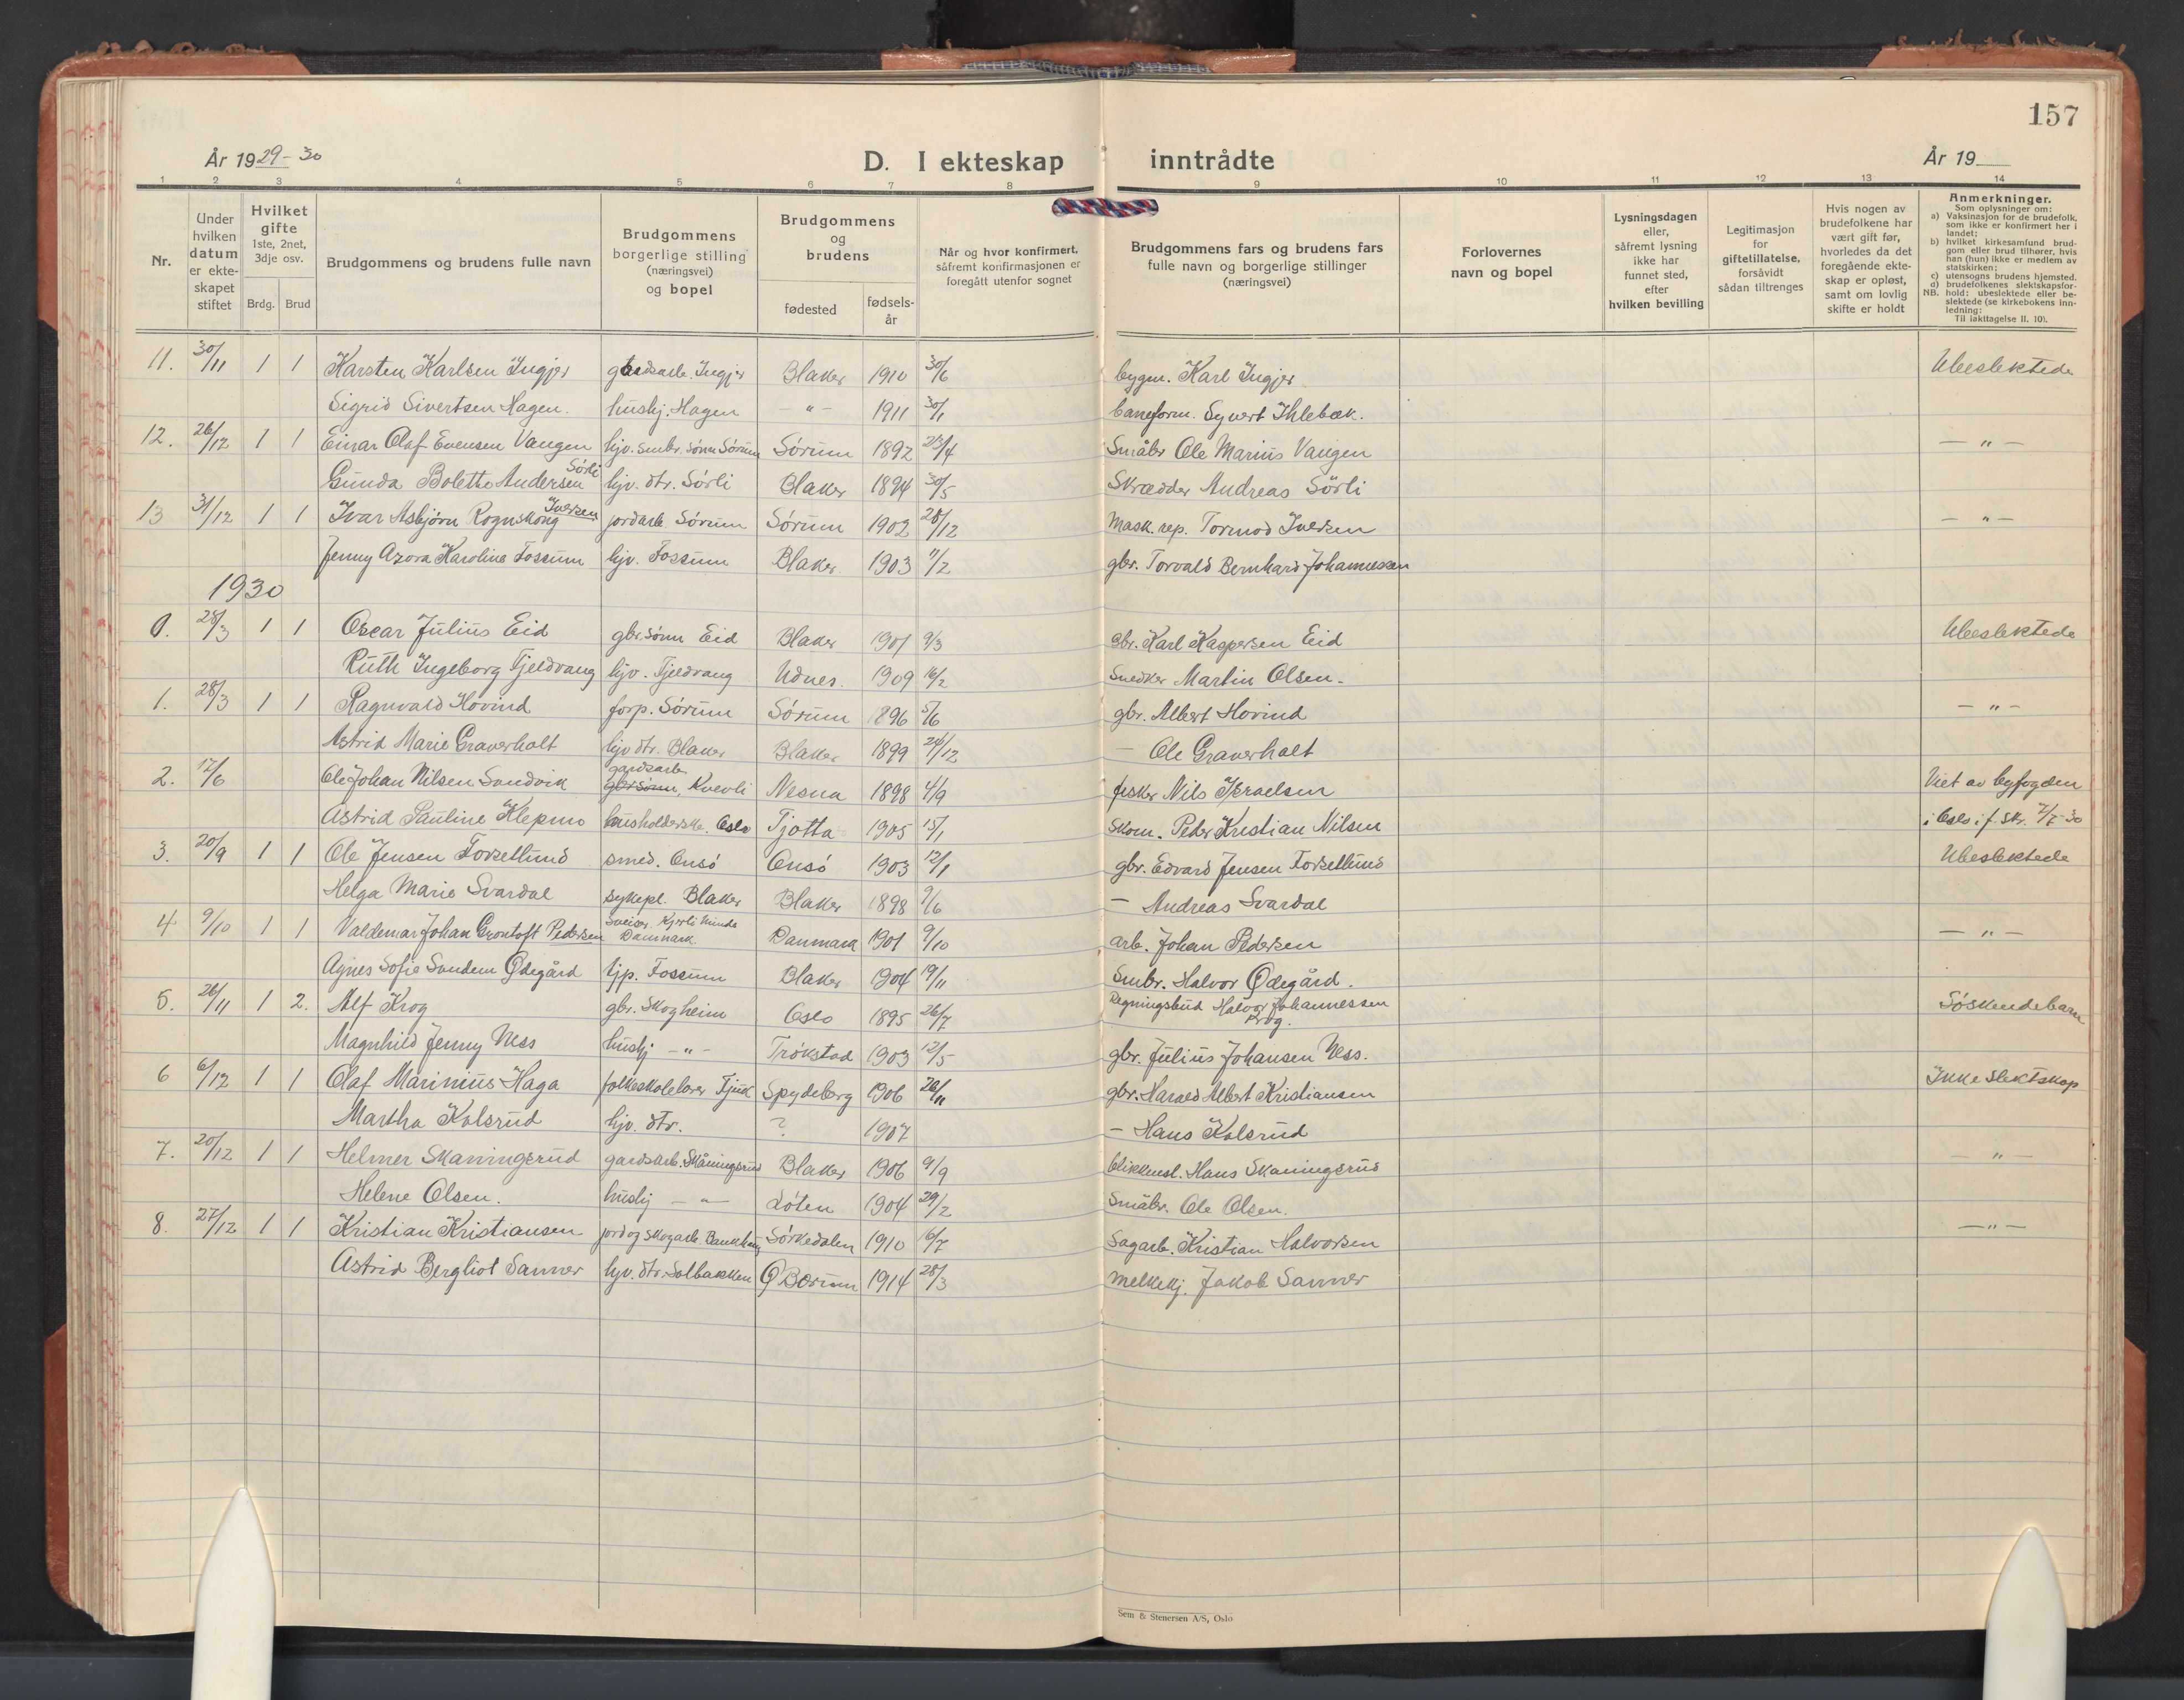 157
År 1929-30
D. I ekteskap inntrådte
År 19
1 2 3 4 5 6 7 8 9 10 11 12 13 14
Nr.
Under hvilken datum er ekte-skapet stiftet
Hvilket gifte 1ste, 2net, 3dje osv.
Brdg. Brud
Brudgommens og brudens fulle navn
Brudgommens borgerlige stilling (næringsvei) og bopel
Brudgommens og brudens
fødested
fødsels-år
Når og hvor konfirmert, såfremt konfirmasjonen er foregått utenfor sognet
Brudgommens fars og brudens fars fulle navn og borgerlige stillinger (næringsvei)
Forlovernes navn og bopel
Lysningsdagen eller, såfremt lysning ikke har funnet sted, efter hvilken bevilling
Legitimasjon for giftetillatelse, forsåvidt sådan tiltrenges
Hvis nogen av brudefolkene har vært gift før, hvorledes da det foregående ekte-skap er opløst, samt om lovlig skifte er holdt
Anmerkninger.
Som oplysninger om:
a) Vaksinasjon for de brudefolk, som ikke er konfirmert her i landet;
b) hvilket kirkesamfund brud-gom eller brud tilhører, hvis han (hun) ikke er medlem av statskirken;
c) utensogns brudens hjemsted.
d) brudefolkenes slektskapsfor-
NB. hold: ubeslektede eller be-slektede (se kirkebokens inn-ledning:
Til iakttagelse II. 10).
11. 30/11 1 1 Karsten Karlsen Ingjer gardsarb. Ingjer Blaker 1910 30/6 bygm. Karl Ingjer Ubeslektede
Sigrid Sivertsen Hagen. hushj. Hagen - " - 1911 30/1 baneform. Syvert Ihlebæk.
12. 26/12 1 1 Einar Olaf Evensen Vangen hjv. smbr. sønn Sørum Sørum 1892 23/4 Småbr Ole Marius Vangen - " -
Gunda Bolette Andersen Sørli hjv. dtr. Sørli Blaker 1894 30/5 Skrædder Andreas Sörli
13 31/12 1 1 Ivar Asbjørn Rognskong Iversen jordarb Sörum Sörum 1902 28/12 Mask. rep. Tormod Iversen - " -
Jenny Azora Karoline Fossum hjv. Fossum Blaker 1903 11/2 gbr. Torvald Bernhard Johannessen
1930
0. 28/3 1 1 Oscar Julius Eid gbr. sønn Eid Blaker 1901 9/3 gbr. Karl Kaspersen Eid Ubeslektede
Ruth Ingeborg Fjeldvang hjv. Fjeldvang Udnes. 1909 16/2 Snedker Martin Olsen.
1. 28/3 1 1 Ragnvald Hovind forp. Sörum Sörum 1896 5/6 gbr. Albert Hovind - " -
Astrid Marie Graverholt hjv dtr. Blaker Blaker 1899 24/12 — Ole Graverholt
2. 17/6 Ole Johan Nilsen Sandvik gardsarb gbrsønn, Kvevli Nesna 1898 4/9 fisker Nils Israelsen Viet av byfogden
Astrid Pauline Klepmo husholderske. Oslo Tjøtta 1905 15/1 Skom. Peder Kristian Nilsen i Oslo i f. skr. 7/7-30
3. 20/9 1 1 Ole Jensen Forsetlund smed. Onsö Onsö 1903 12/1 gbr. Edvard Jensen Forsetlund Ubeslektede
Helga Marie Svardal sykepl. Blaker Blaker 1898 9/6 — Andreas Svardal
4 9/10 1 1 Valdemar Johan Grontoft Pedersen Sveiser. Danmark Danmark 1901 9/10 arb. Johan Pedersen - " -
Agnes Sofie Sundem Ødegård tjp. Fossum Blaker 1904 19/11 Smbr. Halvor Ødegård.
5. 26/11 1 2. Alf Krog gbr. Skogheim Oslo 1895 26/7 Regningsbud Halvor Johannessen Krog. Söskendebarn
Magnhild Jenny Ness hushj - " - Trökstad 1903 12/5 gbr. Julius Johansen Ness.
6 6/12 1 1 Olaf Marinius Haga folkeskolelærer Fjuk Spydeberg 1906 26/11 gbr. Harald Albert Kristiansen Ikke slektskap
Martha Kolsrud hjv. dtr. ? 1907 — Hans Kolsrud
7. 20/12 1 1 Helmer Skaningsrud gardsarb. Skåningsrud Blaker 1906 9/9 blikkensl. Hans Skaningsrud - " -
Helene Olsen. hushj - " - Löten 1904 29/2 Småbr. Ole Olsen.
8. 27/12 1 1 Kristian Kristiansen jord og skogarb. Sörkedalen 1910 16/7 Sagarb. Kristian Halvorsen - " -
Astrid Bergliot Sanner hjv. dtr. Solbakken Ø Bærum 1914 28/3 melkekj. Jakob Sanner
Sem & Stenersen A/S, Oslo